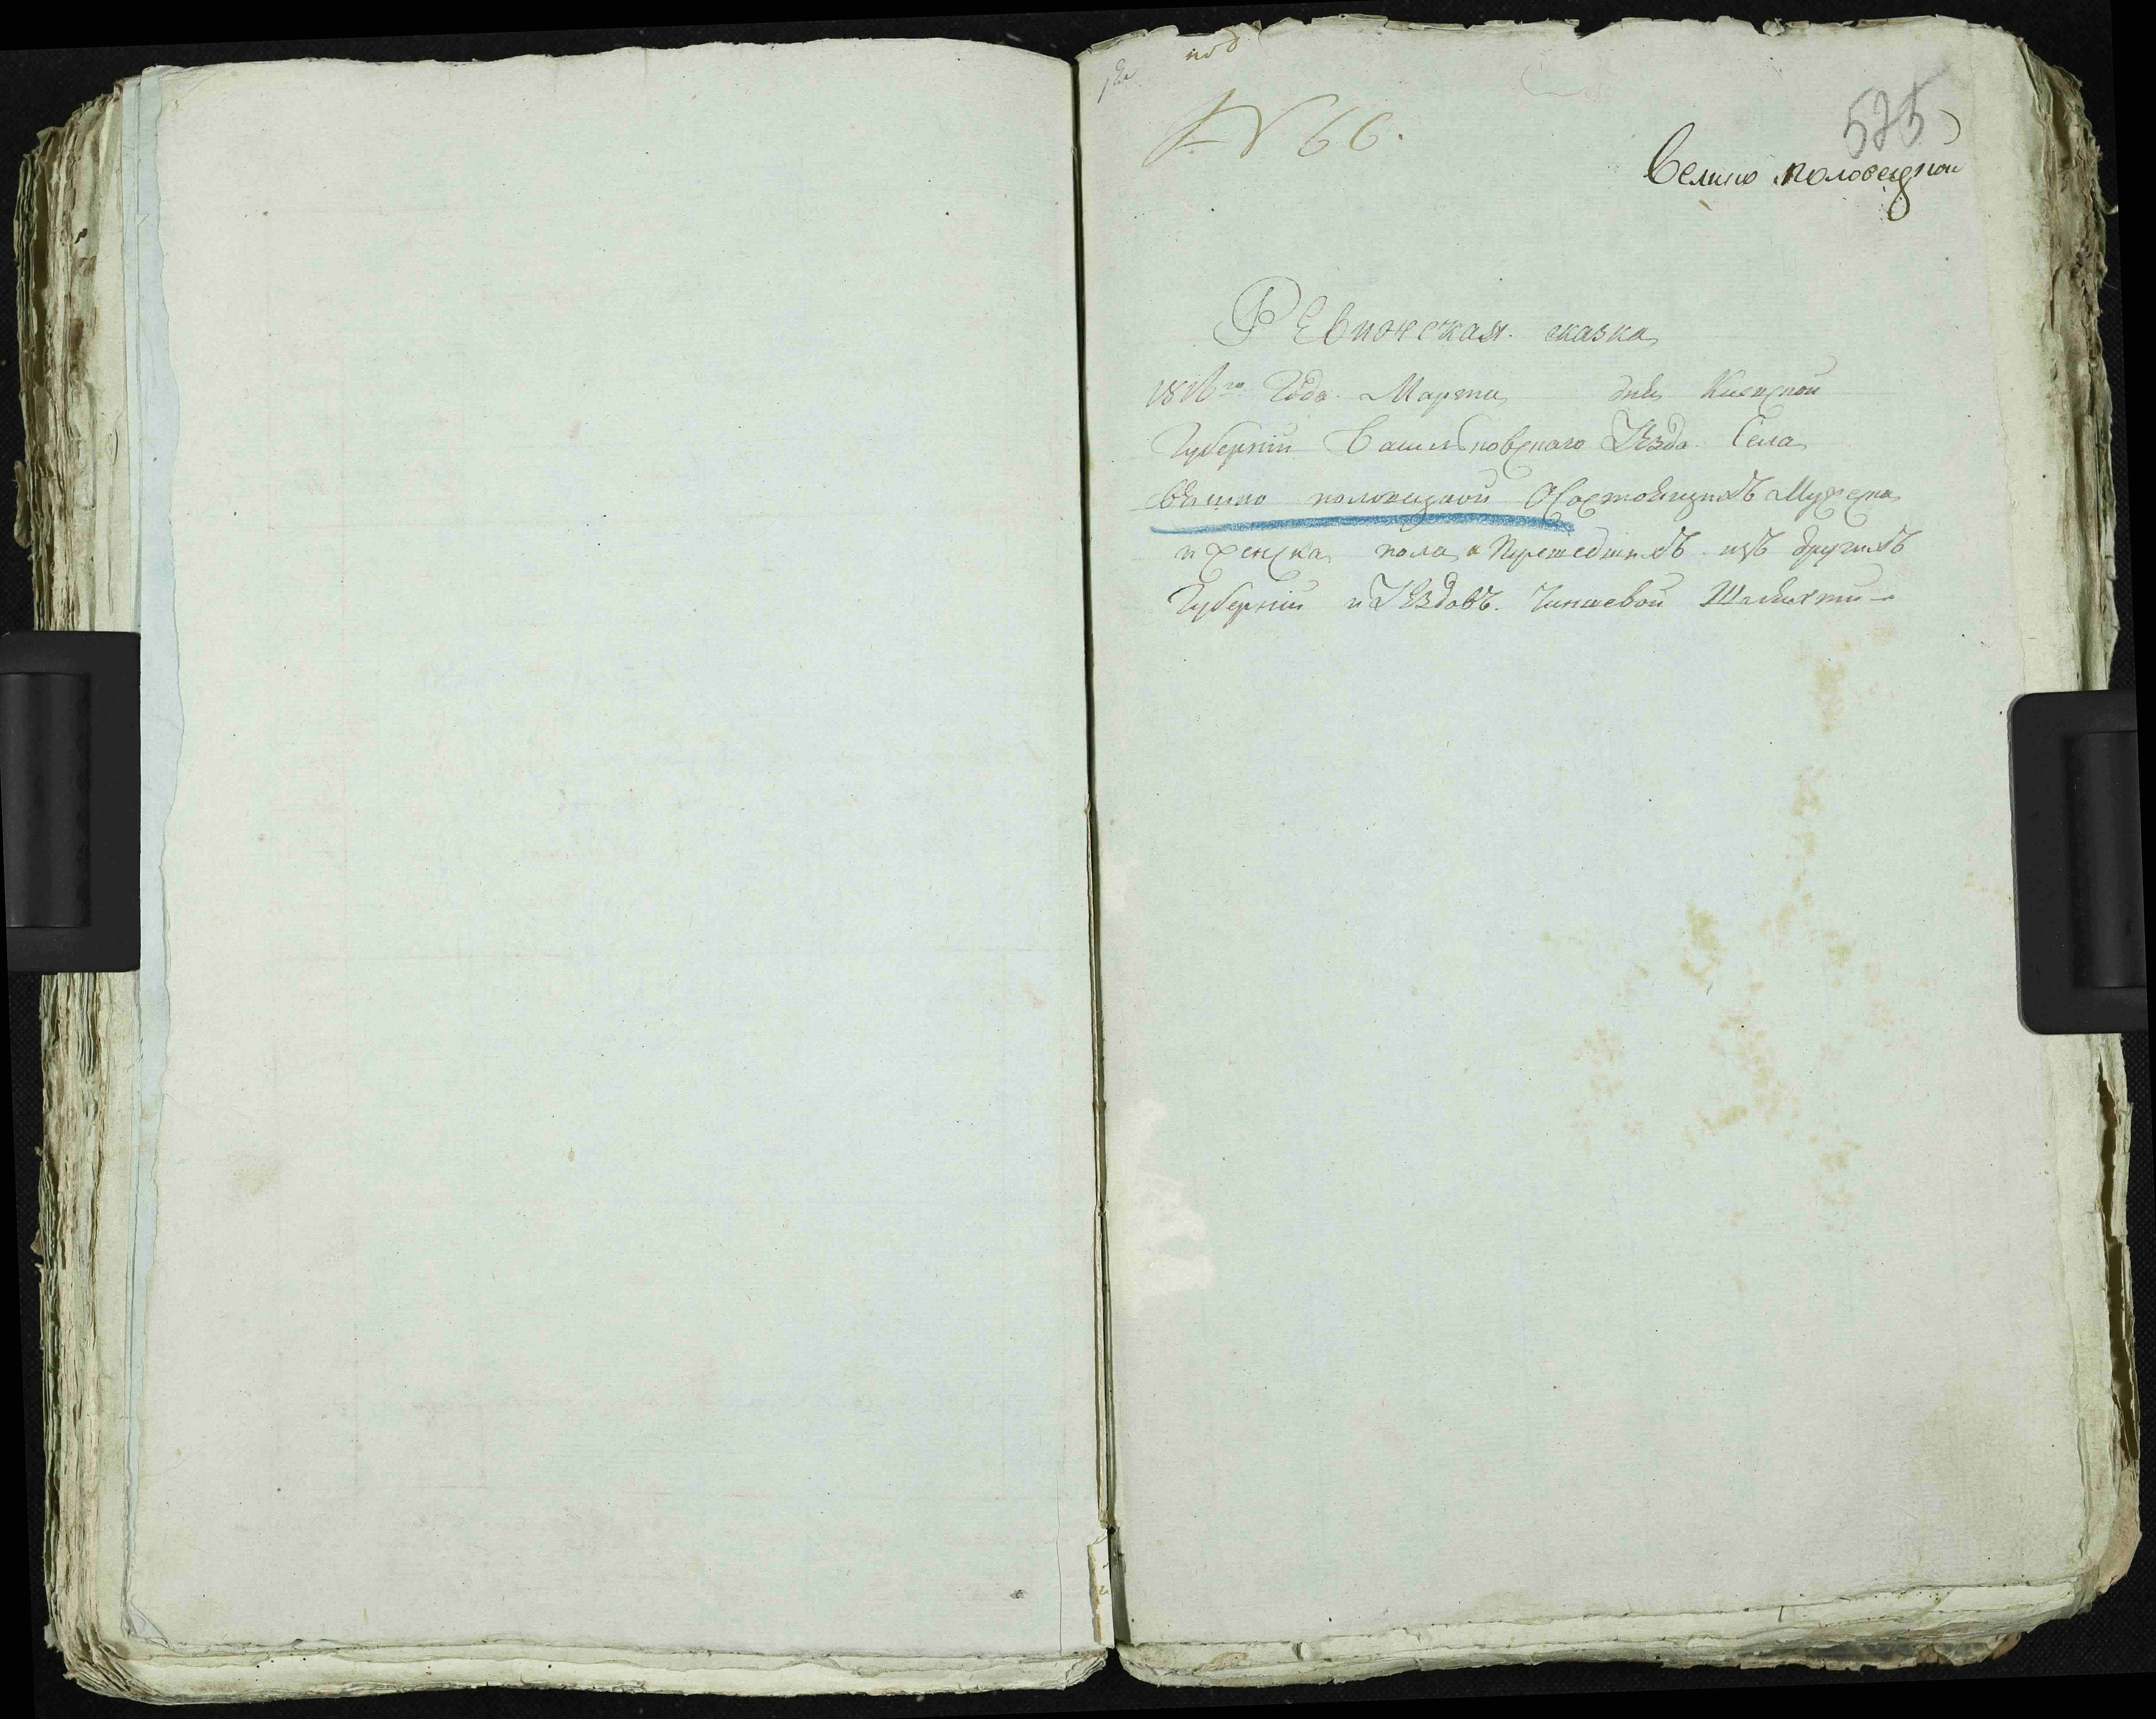 под
№ 66.
525
Велико половецкой
Ревижская сказка
1816го Года Марта дня Киевской
Губернии Васильковского Уезда Села
Велико половецкой О состоящихъ Мужеска
и женска пола и Перешедшихъ изъ другихъ
Губерний и Уездовъ. Чиншевой Шляхти